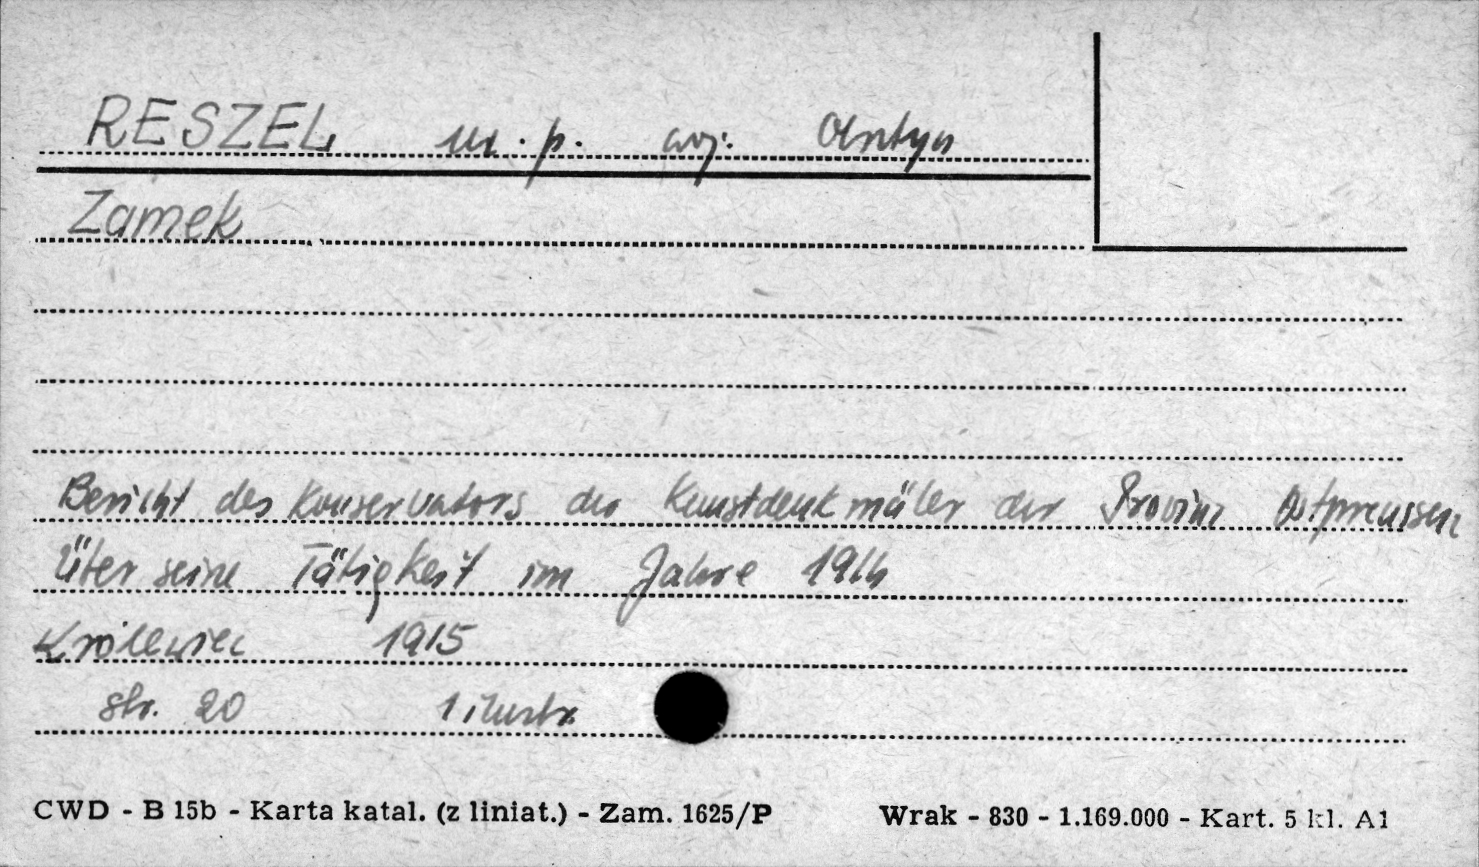 RESZEL m.p. woj. Olsztyn
Zamek
Bericht des Konservators der Kunstdenkmäler der Provinz Ostpreussen
Über seine Tätigkeit im Jahre 1914
Królewiec 1915
str. 20 1 ilustr.
CWD - B 15b - Karta katal. (z liniat.) - Zam. 1625/P Wrak - 830 - 1.169.000 - Kart. 5 kl. A1